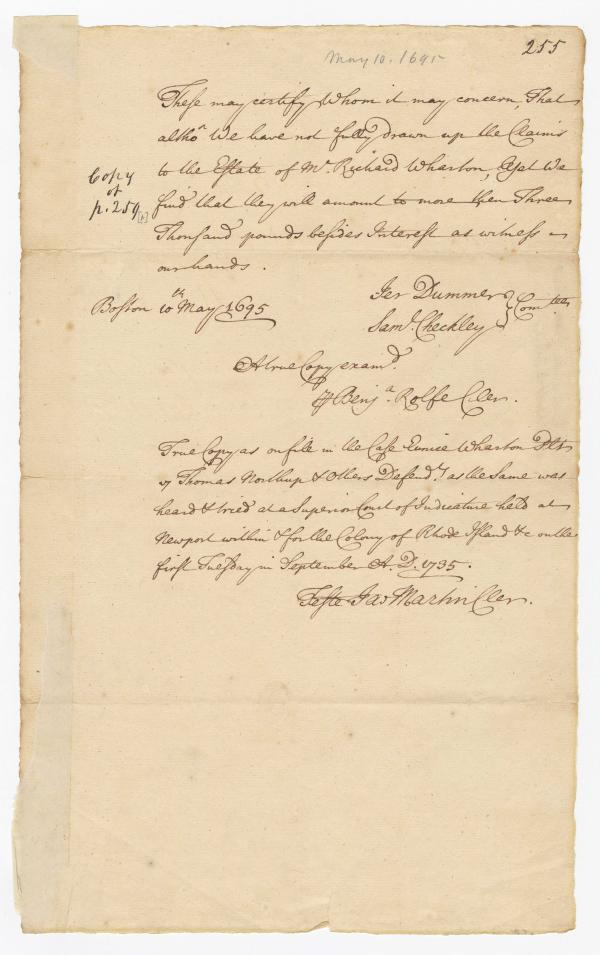 255
May 10. 1695
These may certify Whom it may concern, That
altho' We have not fully drawn up the Claims
to the Estate of Mr. Richard Wharton, yet We
find that they will amount to more then Three
Thousand pounds besides Interest as witness
our hands.
Copy
of
p. 259
Boston 10th May 1695
Jer Dummer
Saml. Checkley } Comtees
A true Copy examd.
⅌ Benja. Rolfe Cler.
True Copy as on file in the Case Eunice Wharton Plt
vs Thomas Northup & Others Defendts. as the Same was
heard & tried at a Superior Court of Judicature held at
Newport within & for the Colony of Rhode Island &c on the
first Tuesday in September A. D. 1735.
Teste Jas Martin Cler.